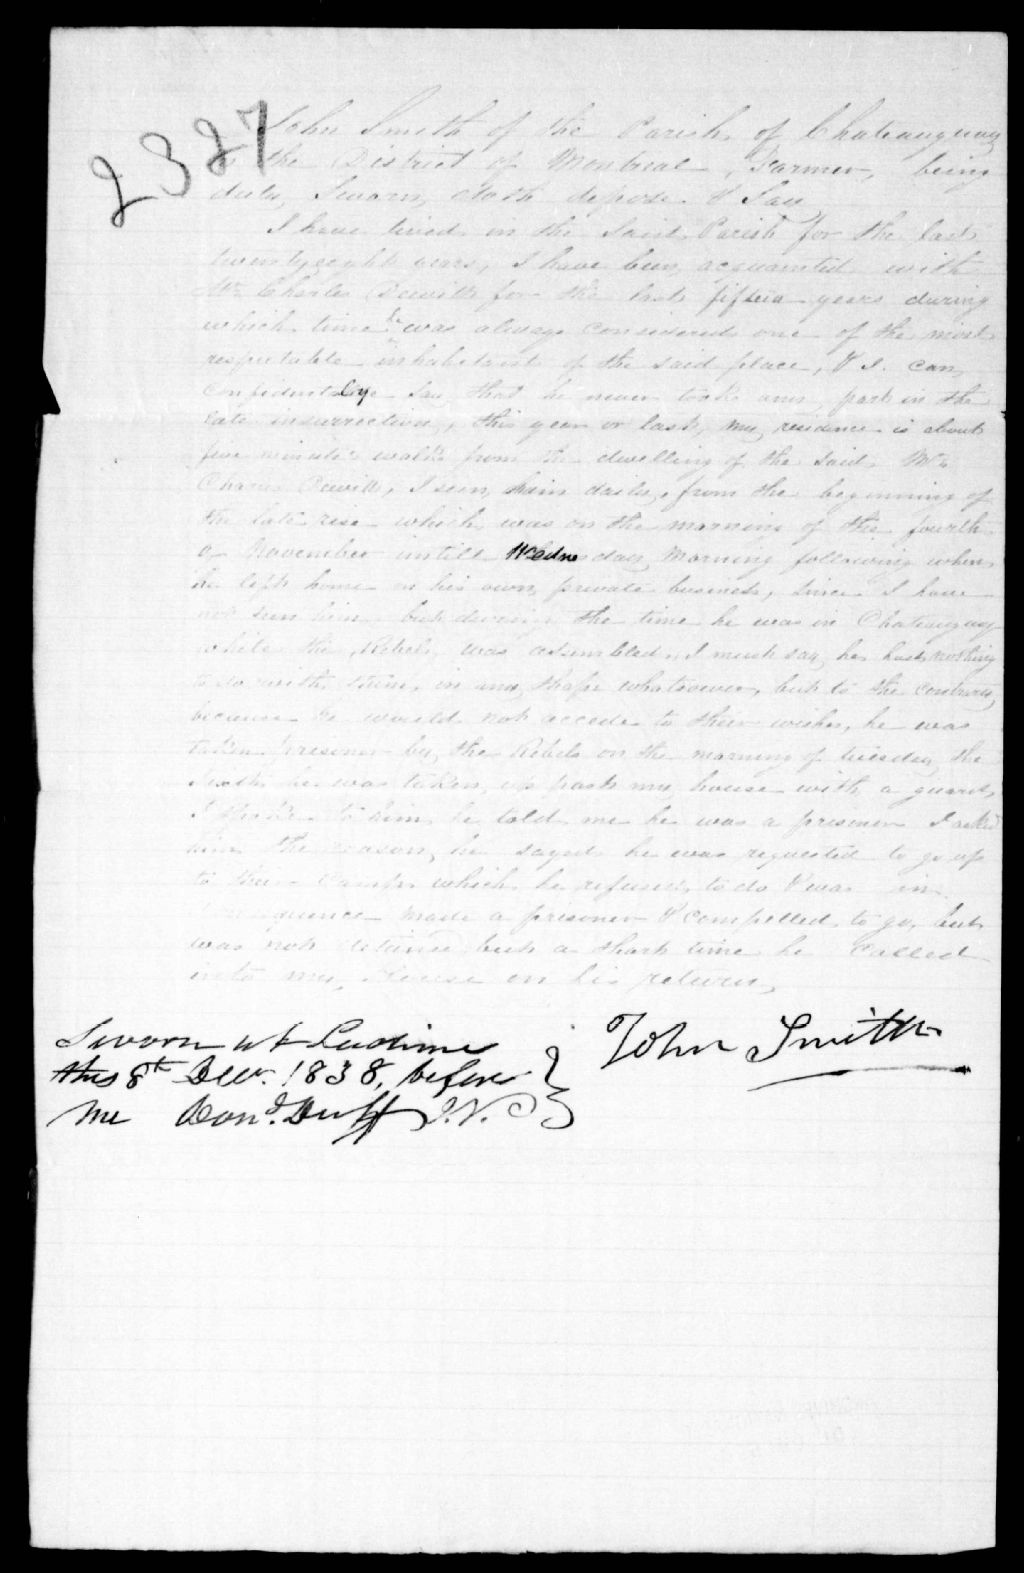 2327
John Smith of the Parish of Chateauguay
in the District of Montreal, Farmer, being
duly Sworn, doth depose & Say
I have lived in the Said Parish for the last
twentyeight years, I have been acquainted with
Mr Charles Dewitt for the last fifteen years during
which time he was always considered one of the most
respectable inhabitant of the said place, & I can
Confidently Say that he never tooke any part in the
late insurrection, this year or last, my residence is about
five minute's walk from the dwelling of the Said Mr
Charles Dewitt, I seen him daily, from the beginning of
the late rise which was on the morning of the fourth
of November untill Wednesday Morning following when
he left home on his own private business, Since I have
not seen him, but during the time he was in Chateauguay
while the Rebels was assembled, I must say he had nothing
to do with them in any shape whatsoever, but to the contrary
because he would not accede to their wishes, he was
taken prisoner by the Rebels on the morning of tuesday the
Sixth he was taken up past my house with a guard,
I spoke to him he told me he was a prisoner I asked
him the reason, he sayed he was requested to go up
to their Camp which he refused to do & was in
Consequence made a prisoner & compelled to go, but
was not detained but a short time he Called
into my House on his return,
John Smith
Sworn at Lachine
this 8th Decr. 1838, before
me Dond. Duff J.P.